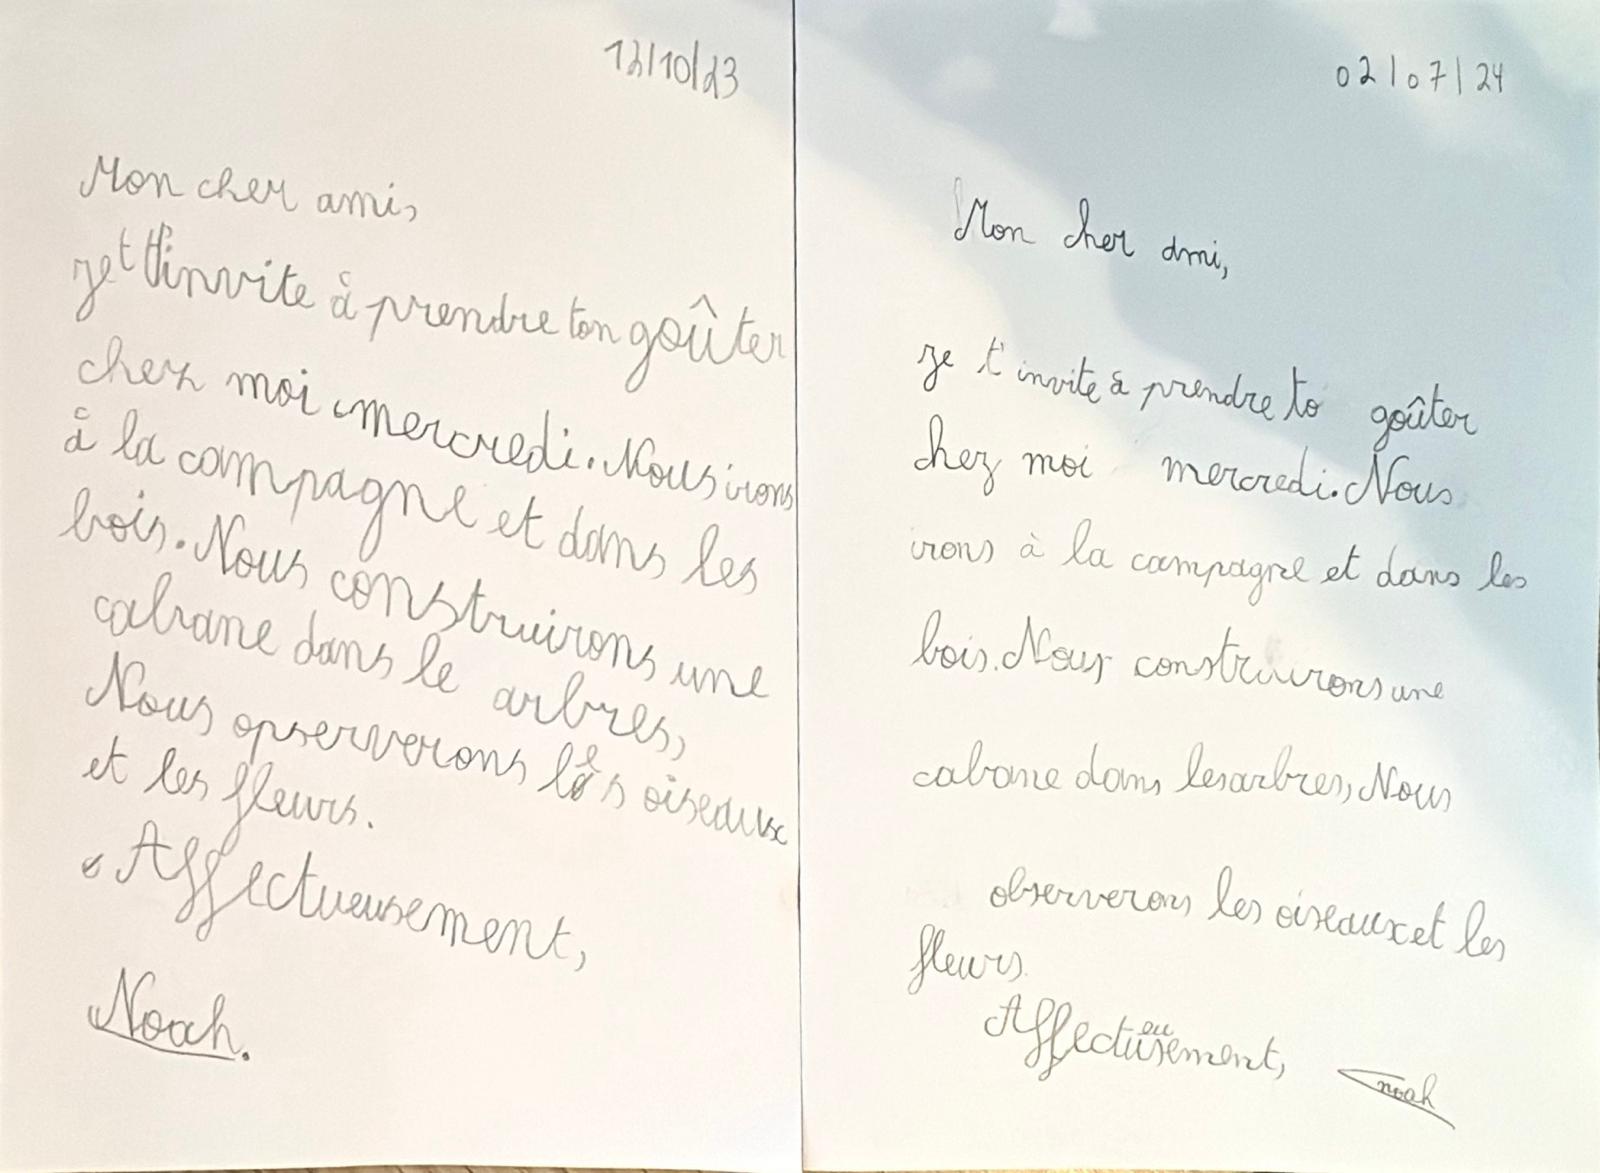 12/10/23
Mon cher ami,
je t t'invite à prendre ton goûter
chez moi mercredi. Nous irons
à la campagne et dans les
bois. Nous construirons une
cabane dans le arbres,
Nous opserverons les oiseaux
et les fleurs.
Affectueusement,
Noah.
02/07/24
Mon cher ami,
je t'invite à prendre to goûter
chez moi mercredi. Nous
irons à la campagne et dans les
bois. Nous construirons une
cabane dans les arbres, Nous
observerons les oiseaux et les
fleurs.
Affectueusement,
noah